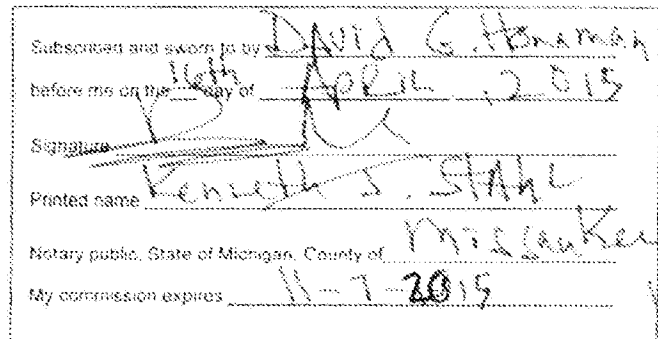 Subscribed and sworn to by David G. Honaman
before me on the 16th day of April, 2015
Signature
Printed name Kenneth J. Stahl
Notary public, State of Michigan, County of Missaukee
My commission expires 11-7-2015